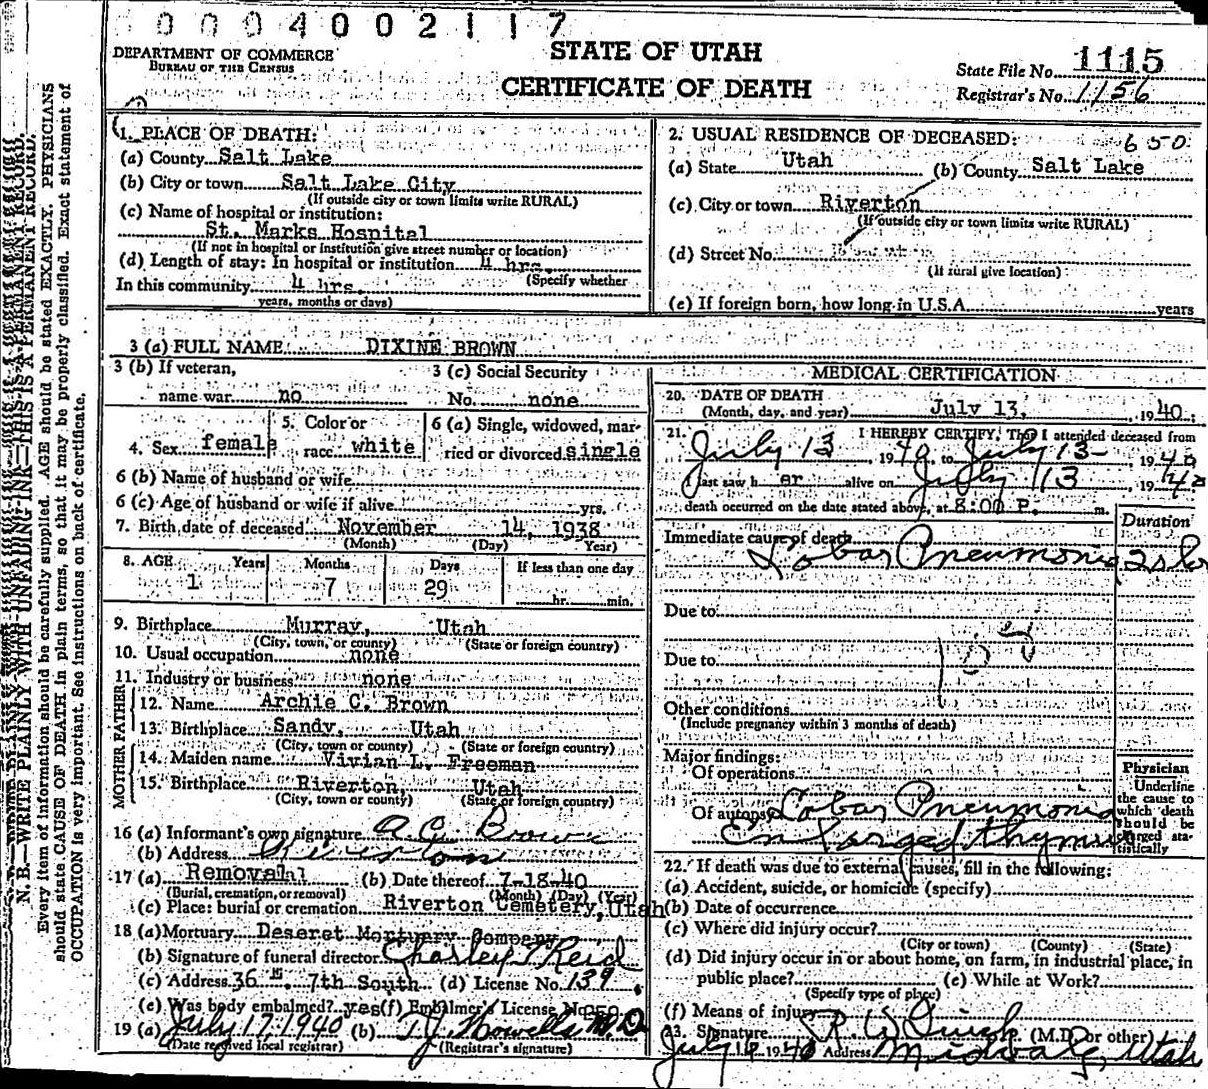 0004002117
DEPARTMENT OF COMMERCE
BUREAU OF THE CENSUS
STATE OF UTAH
CERTIFICATE OF DEATH
State File No. 1115
Registrar's No. 1156
1. PLACE OF DEATH:
(a) County Salt Lake
(b) City or town Salt Lake City
(If outside city or town limits write RURAL)
(c) Name of hospital or institution:
St. Marks Hospital
(If not in hospital or institution give street number or location)
(d) Length of stay: In hospital or institution 4 hrs.
(Specify whether
In this community 4 hrs.
years, months or days)
2. USUAL RESIDENCE OF DECEASED: 650
(a) State Utah (b) County Salt Lake
(c) City or town Riverton
(If outside city or town limits write RURAL)
(d) Street No.
(If rural give location)
(e) If foreign born, how long in U.S.A. years
3 (a) FULL NAME DIXINE BROWN
3 (b) If veteran, 3 (c) Social Security
name war no No. none
4. Sex female 5. Color or race white 6 (a) Single, widowed, married or divorced single
6 (b) Name of husband or wife
6 (c) Age of husband or wife if alive yrs.
7. Birth date of deceased November 14, 1938
(Month) (Day) Year)
8. AGE Years Months Days If less than one day
1 7 29 hr. min.
9. Birthplace Murray, Utah
(City, town, or county) (State or foreign country)
10. Usual occupation none
11. Industry or business none
FATHER
12. Name Archie C. Brown
13. Birthplace Sandy, Utah
(City, town or county) (State or foreign country)
MOTHER
14. Maiden name Vivian L. Freeman
15. Birthplace Riverton, Utah
(City, town or county) (State or foreign country)
16 (a) Informant's own signature A. C. Brown
(b) Address Riverton
17 (a) Removal (b) Date thereof 7-18-40
(Burial, cremation, or removal) (Month) (Day) (Year)
(c) Place: burial or cremation Riverton Cemetery, Utah
18 (a) Mortuary Deseret Mortuary Company
(b) Signature of funeral director Charley T Reid
(c) Address 36 E. 7th South (d) License No. 139
(e) Was body embalmed? yes (f) Embalmer's License No
19 (a) July 17, 1940 (b) T.J. Howells M.D.
(Date received local registrar) (Registrar's signature)
MEDICAL CERTIFICATION
20. DATE OF DEATH
(Month, day, and year) July 13, 1940
21. I HEREBY CERTIFY, That I attended deceased from
July 13, 1940, to July 13 1940
I last saw h er alive on July 13 1940
death occurred on the date stated above, at 8:00 P. m.
Duration
Immediate cause of death
Lobar Pneumonia
Due to
Due to
Other conditions
(Include pregnancy within 3 months of death)
Major findings:
Of operations
Of autopsy Lobar Pneumonia
Enlarged thymus
Physician
Underline the cause to which death should be charged statistically
22. If death was due to external causes, fill in the following:
(a) Accident, suicide, or homicide (specify)
(b) Date of occurrence
(c) Where did injury occur?
(City or town) (County) (State)
(d) Did injury occur in or about home, on farm, in industrial place, in
public place? (e) While at Work?
(Specify type of place)
(f) Means of injury
23. Signature (M.D. or other)
July 16 1940 Address Midvale, Utah
N. B.—WRITE PLAINLY WITH UNFADING INK—THIS IS A PERMANENT RECORD.
Every item of information should be carefully supplied. AGE should be stated EXACTLY. PHYSICIANS
should state CAUSE OF DEATH in plain terms, so that it may be properly classified. Exact statement of
OCCUPATION is very important. See instructions on back of certificate.